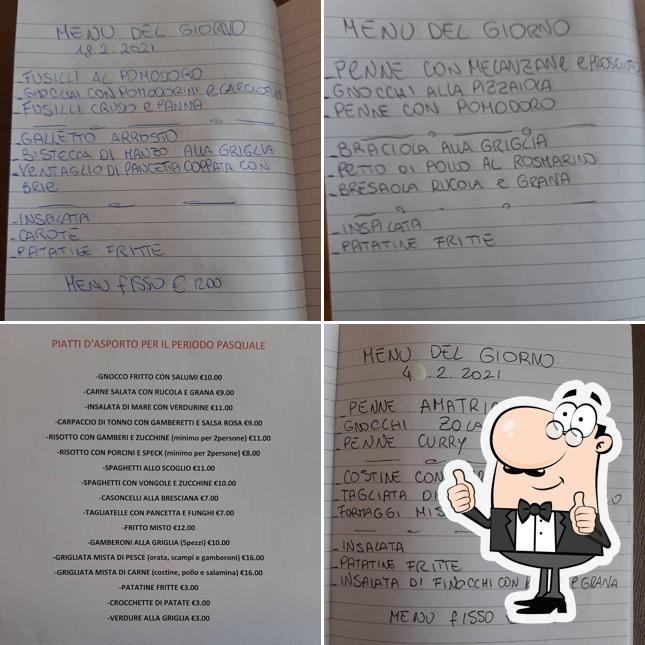 MENU DEL GIORNO
18.2.2021
-FUSILLI AL POMODORO
-GNOCCHI CON POMODORINI e CARCIOFI
-FUSILLI CRUDO e PANNA
-GALLETTO ARROSTO
-BISTECCA DI MANZO ALLA GRIGLIA
-VENTAGLIO DI PANCETTA COPPATA CON
BRIE
-INSALATA
-CAROTE
-PATATINE FRITTE
MENU fISSO € 12.00
MENU DEL GIORNO
-PENNE CON MELANZANE e PROSCIUTTO
-GNOCCHI ALLA PIZZAIOLA
-PENNE CON POMODORO
-BRACIOLA ALLA GRIGLIA
-PETTO DI POLLO AL ROSMARINO
-BRESAOLA RUCOLA e GRANA
-INSALATA
-PATATINE FRITTE
PIATTI D'ASPORTO PER IL PERIODO PASQUALE
-GNOCCO FRITTO CON SALUMI €10.00
-CARNE SALATA CON RUCOLA E GRANA €9.00
-INSALATA DI MARE CON VERDURINE €11.00
-CARPACCIO DI TONNO CON GAMBERETTI E SALSA ROSA €9.00
-RISOTTO CON GAMBERI E ZUCCHINE (minimo per 2persone) €11.00
-RISOTTO CON PORCINI E SPECK (minimo per 2persone) €8.00
-SPAGHETTI ALLO SCOGLIO €11.00
-SPAGHETTI CON VONGOLE E ZUCCHINE €10.00
-CASONCELLI ALLA BRESCIANA €7.00
-TAGLIATELLE CON PANCETTA E FUNGHI €7.00
-FRITTO MISTO €12.00
-GAMBERONI ALLA GRIGLIA (5pezzi) €10.00
-GRIGLIATA MISTA DI PESCE (orata, scampi e gamberoni) €16.00
-GRIGLIATA MISTA DI CARNE (costine, pollo e salamina) €16.00
-PATATINE FRITTE €3.00
-CROCCHETTE DI PATATE €3.00
-VERDURE ALLA GRIGLIA €3.00
MENU DEL GIORNO
4 .2.2021
-PENNE AMATRI
-GNOCCHI ZOLA
-PENNE CURRY
-COSTINE CON
-TAGLIATA DI
-FORMAGGI MIS
-INSALATA
-PATATINE FRITTE
-INSALATA DI FINOCCHI CON e GRANA
MENU fISSO